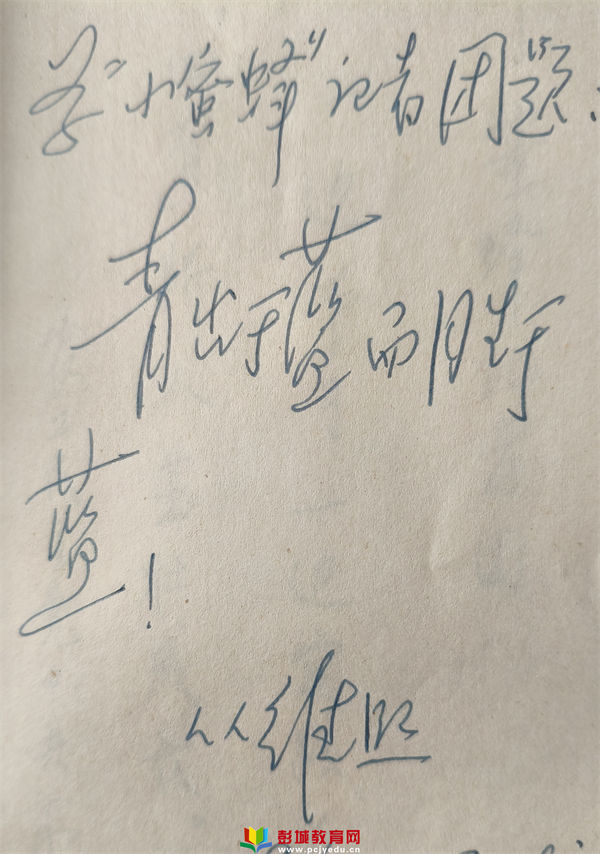 "小蜜蜂"记者团题：
青出于蓝而胜于
蓝！
从维熙
彭城教育网
www.pcjyedu.cn